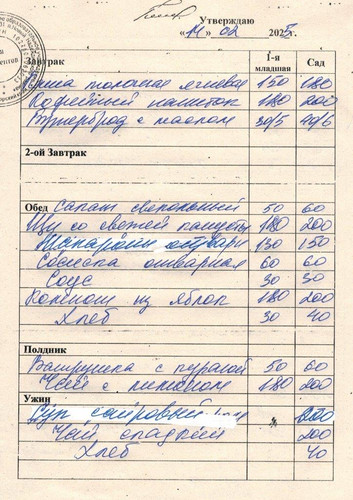 Утверждаю
«14» 02 2025
Завтрак 1-я младшая Сад
Каша молочная ячневая 150 180
Кофейный напиток 180 200
Бутерброд с маслом 30/5 40/6
2-ой Завтрак
Обед Салат свекольный 50 60
Щи со свежей капусты 180 200
Макароны отварн 130 150
Сосиска отварная 60 60
Соус 30 30
Компот из яблок 180 200
Хлеб 30 40
Полдник
Ватрушка с 50 60
Чай с лимоном 180 200
Ужин
Суп сырный 200
Чай сладкий 200
Хлеб 40